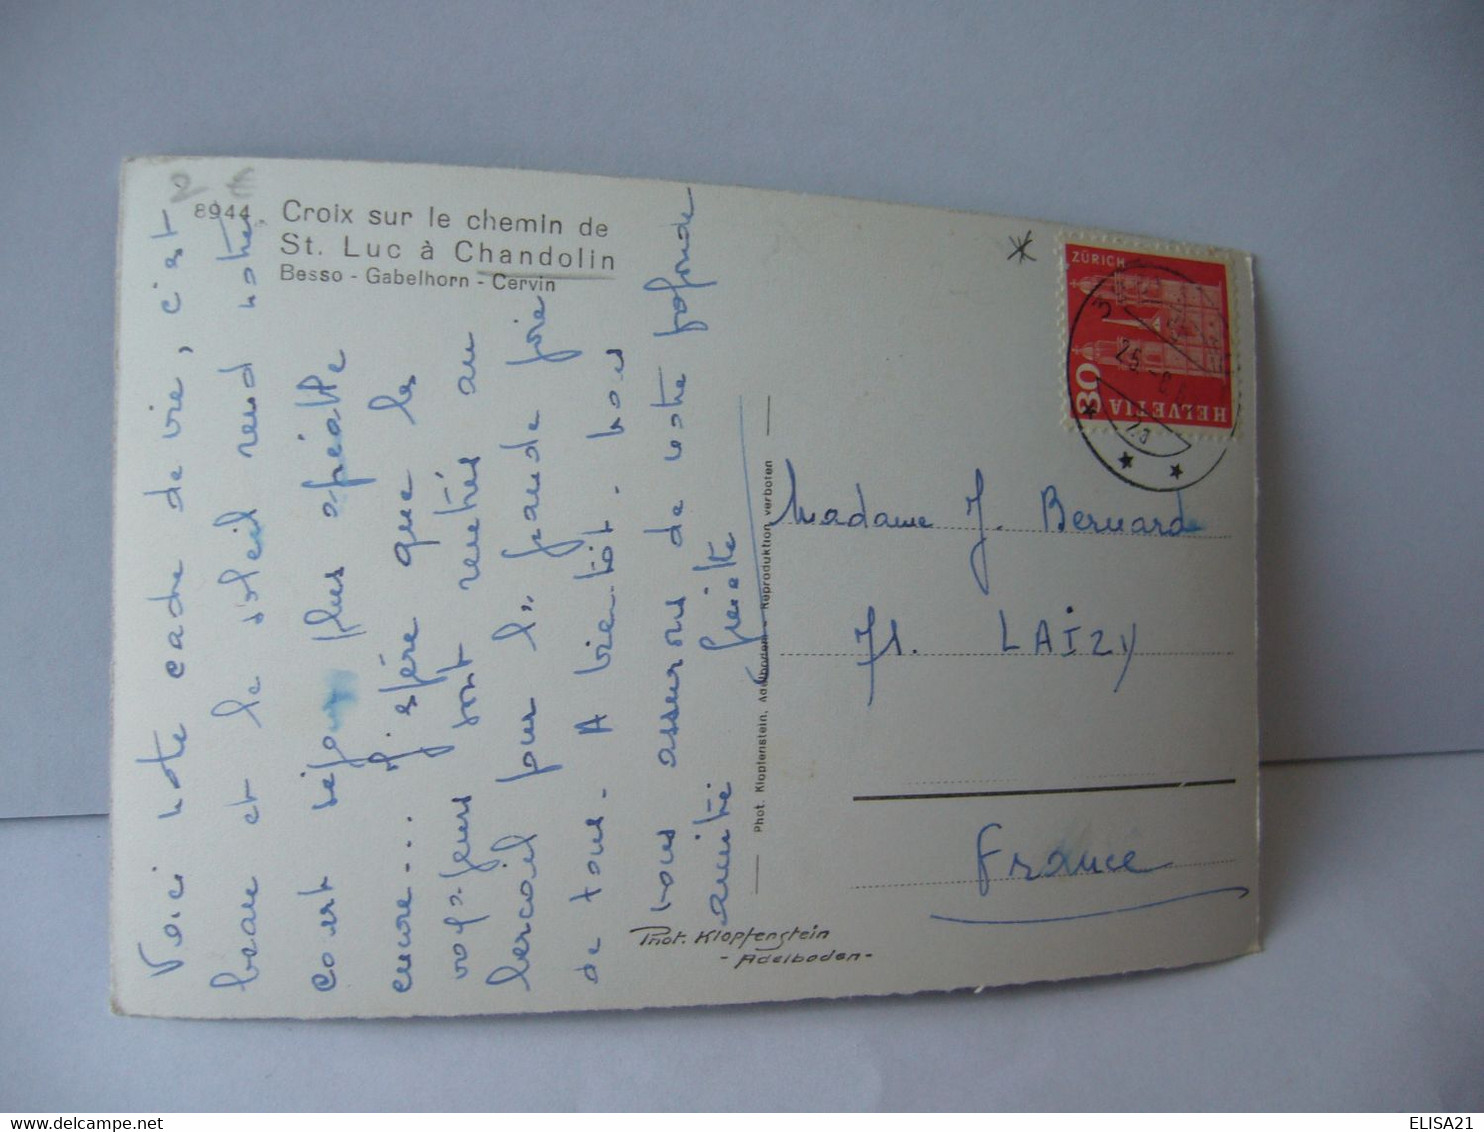 8944. Croix sur le chemin de
St. Luc à Chandolin
Besso - Gabelhorn - Cervin
Voici notre cadre de vie, c'est
beau et le soleil rend notre
court séjour plus agréable
encore... J'espère que les
voyageurs sont rentrés au
bercail pour la grande joie
de tous. A bientôt. Nous
vous assurons de notre profonde
amitié.
Phot. Klopfenstein, Adelboden - Reproduktion verboten
Phot. Klopfenstein
- Adelboden -
ZÜRICH
30
HELVETIA
Madame J. Bernard
71. LAIZY
France
ELISA21